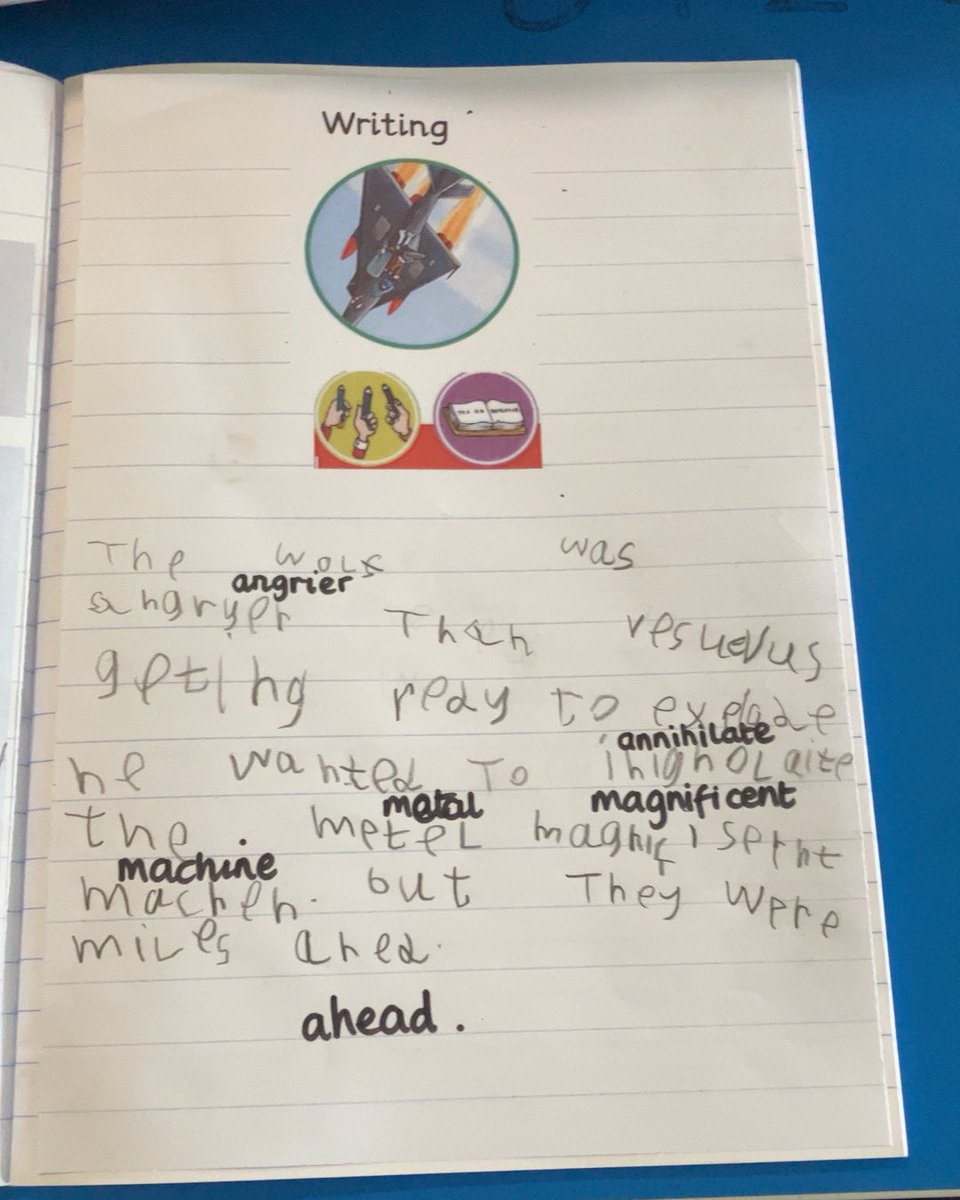 Writing
The wolf was
angrier
angryer Than vesuvus
getting redy to explode
annihilate
he wanted To
metal magnificent
the. metel magnifisernt
machine
machen. but They were
miles ahed.
ahead.